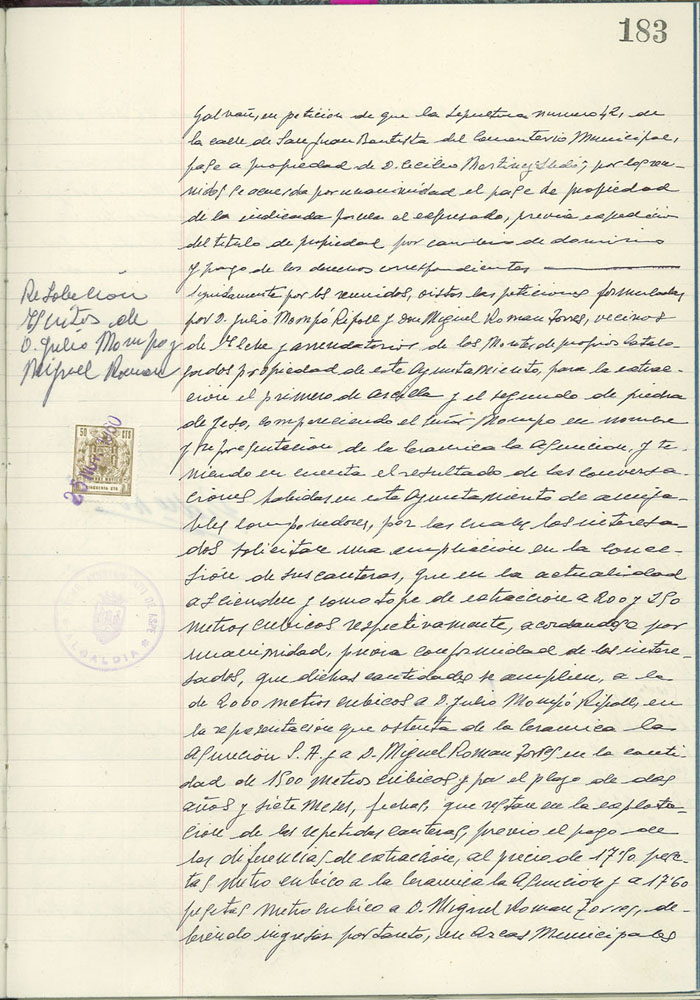 183
Galvañ, en petición de que la sepultura numero 42, de
la calle de San Juan Bautista del Cementerio Municipal,
pase a propiedad de D. Cecilio Martinez, por los reu-
nidos se acuerda por unanimidad el pase de propiedad
de la indicada al expresado, previa expedición
del titulo de propiedad por cambio de dominio
y pago de los derechos correspondientes
Resolución
de
D. Julio Mompó y
Miguel Roman
Seguidamente por los reunidos, vistos las peticiones formuladas
por D. Julio Mompó Ripoll y Don Miguel Roman Torres, vecinos
de Elche y arrendatarios de los Montes de propios Catalo-
gados propiedad de este Ayuntamiento, para la extrac-
ción el primero de arcilla y el segundo de piedra
de yeso, compareciendo el señor Mompó en nombre
y representación de la Ceramica la Asunción, y te-
niendo en cuenta el resultado de las conversa-
ciones habidas en este Ayuntamiento de amiga-
bles componedores, por las cuales los interesa-
dos solicitan una ampliación en la conce-
sión de sus canteras, que en la actualidad
ascienden y como tope de extracción a 200 y 250
metros cubicos respectivamente, acordandose por
unanimidad, previa conformidad de los intere-
sados, que dichas cantidades se amplien, a la
de 2000 metros cubicos a D. Julio Mompó Ripoll, en
la representación que ostenta de la Ceramica la
Asunción S.A. y a D. Miguel Roman Torres en la canti-
dad de 1500 metros cubicos y por el plazo de dos
años y siete meses, fechas, que restan en la explota-
ción de las repetidas canteras, previo el pago de
las diferencias de extracción, al precio de 17'50 pese-
tas metro cubico a la Ceramica la Asunción y a 17'60
pesetas metro cubico a D. Miguel Roman Torres, de-
biendo ingresar por tanto, en Arcas Municipales
50 CTS
ALCALDIA